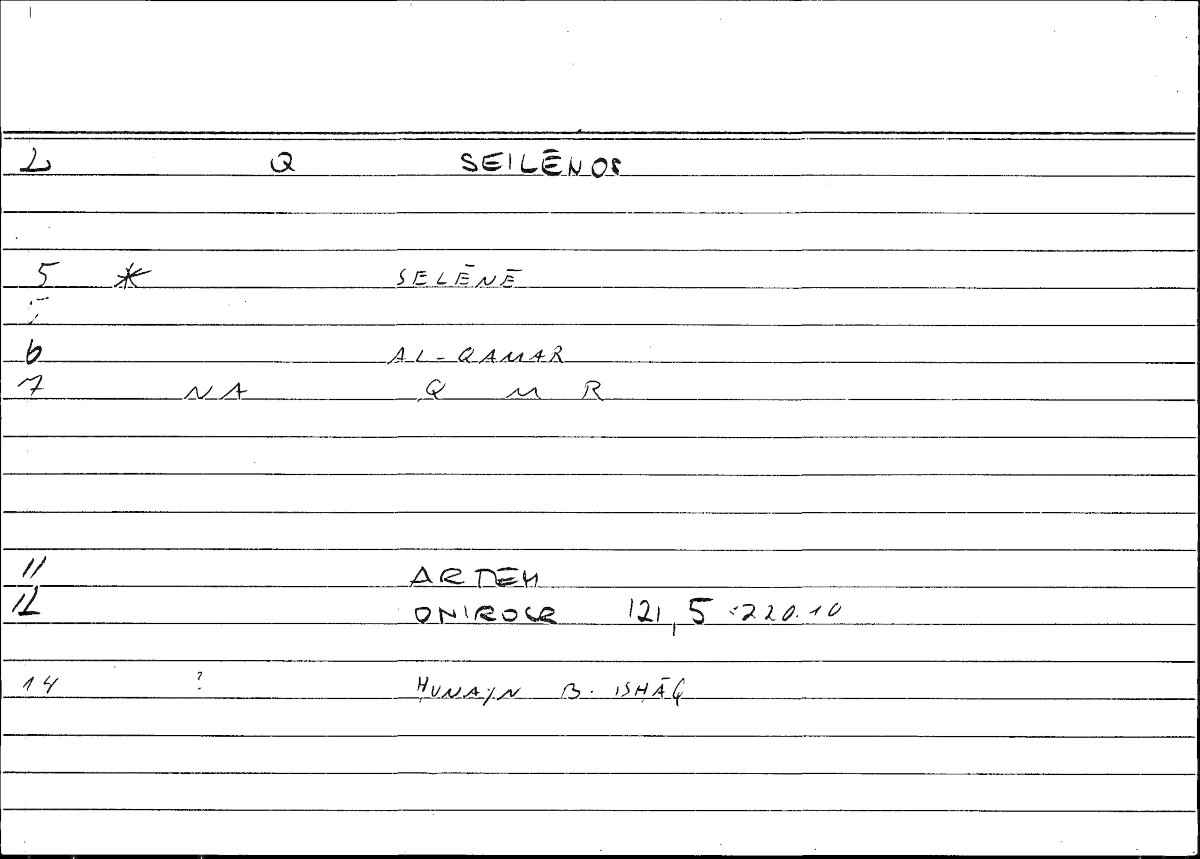 2 Q SEILĒNOS
5 * SELĒNĒ
6 AL-QAMAR
7 NA Q M R
11 ARTEM
12 ONIROCR 121,5:220.10
14 ? ḤUNAYN B. ISḤĀQ